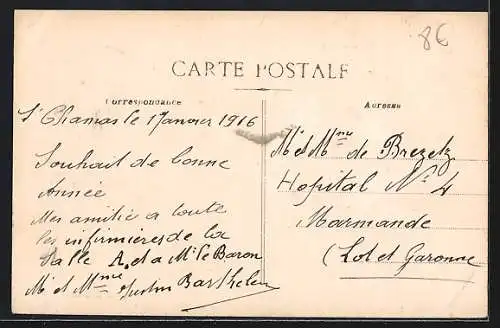 86
CARTE POSTALE
Correspondance
Adresse
St Chamas le 1 Janvier 1916
Souhait de bonne
Année
Mes amitié a toute
les infirmières de la
Salle A. et a Mr le Baron
Mr et Mme Justin Barthelen
Mr et Mme de Brezetz
Hopital No 4
Marmande
(Lot et Garonne